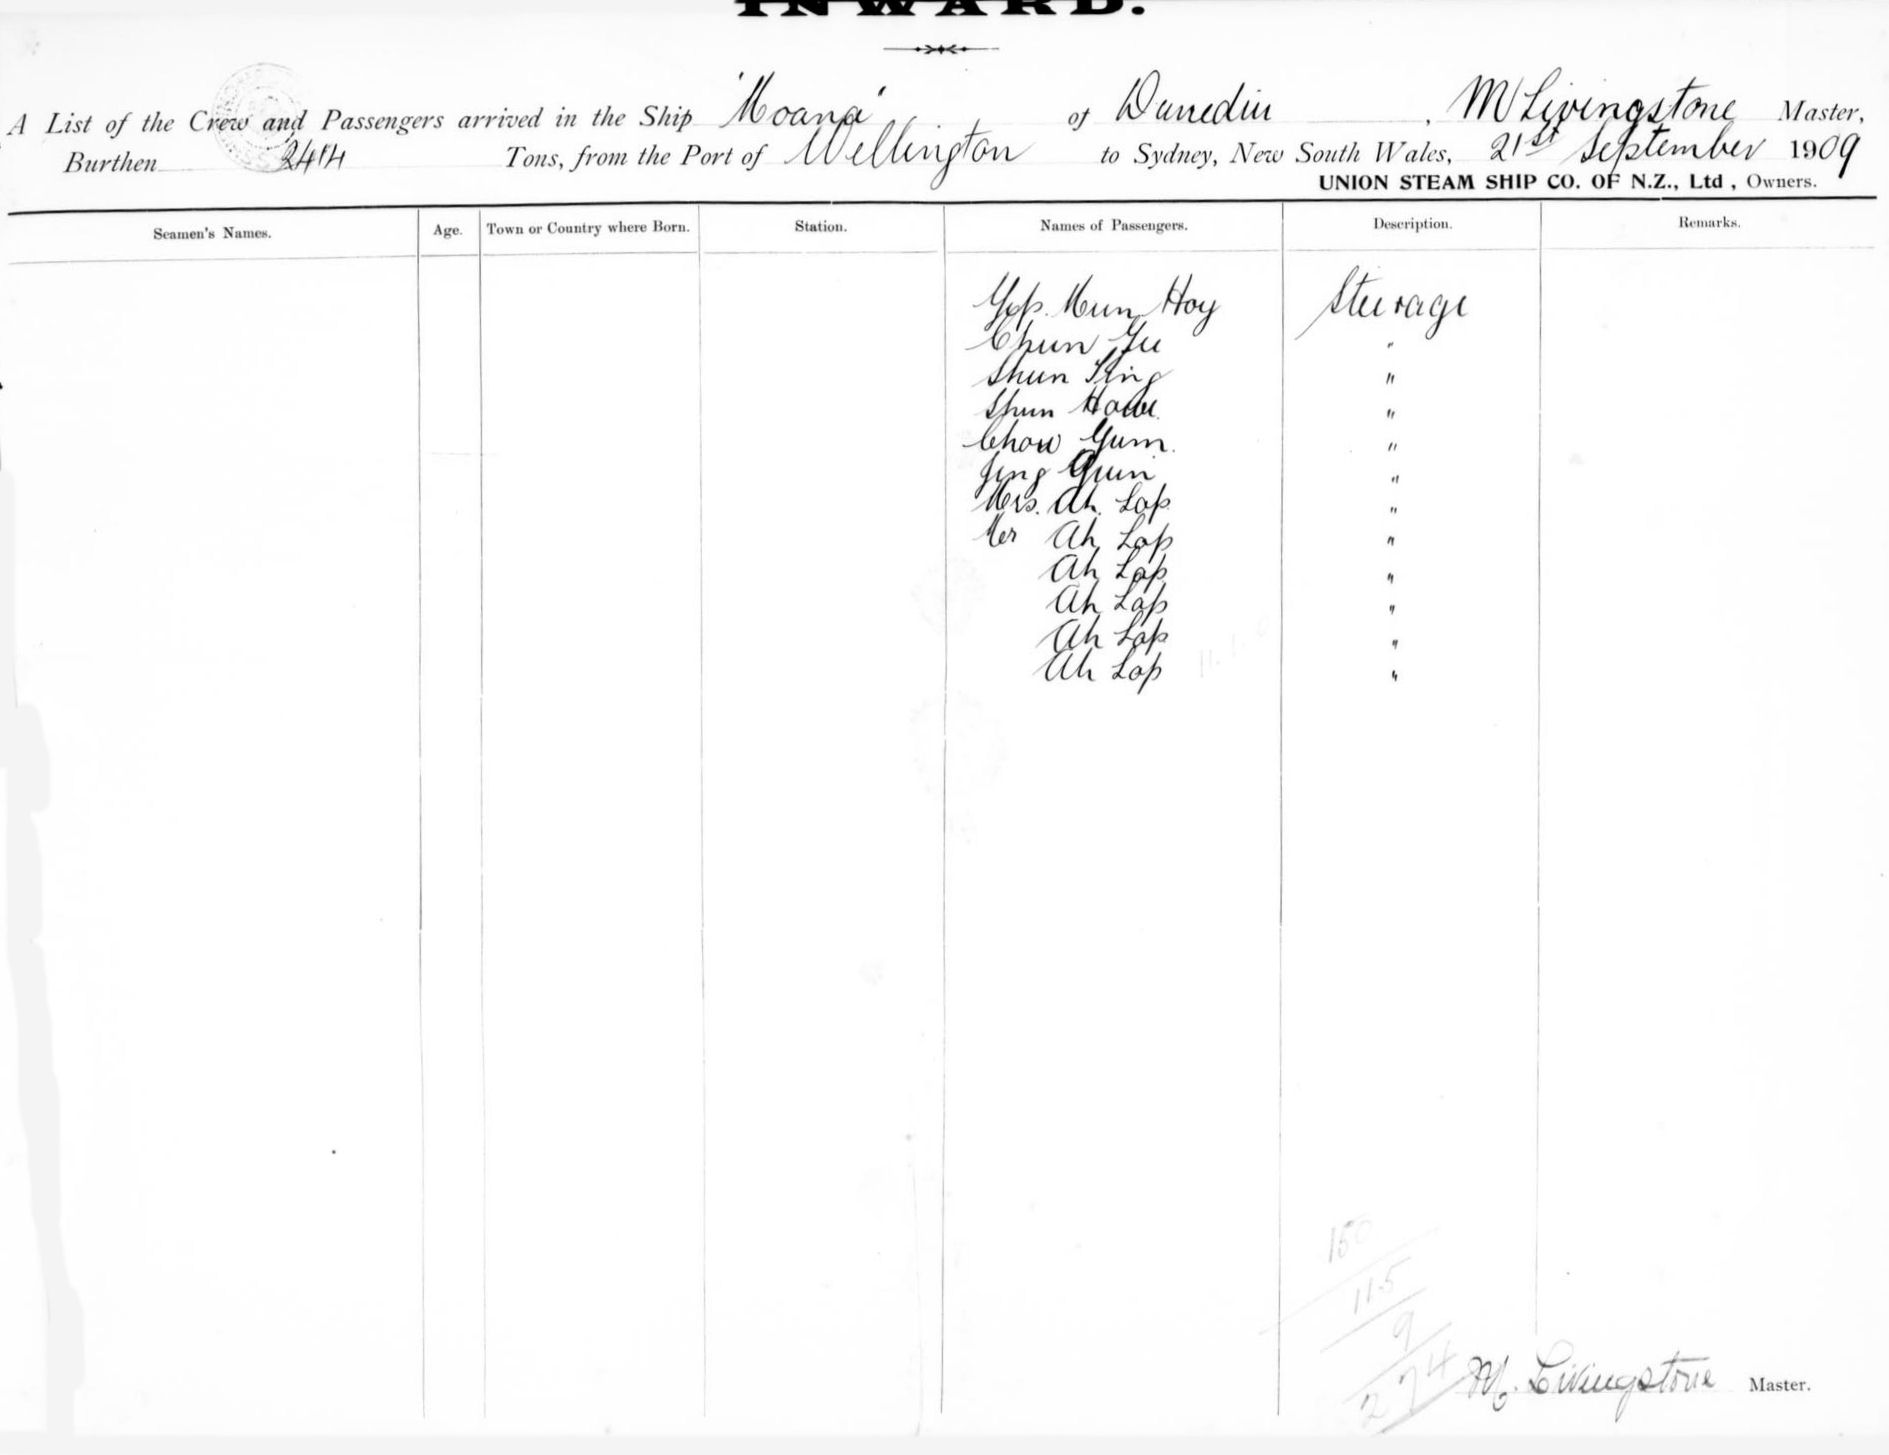 INWARD.
A List of the Crew and Passengers arrived in the Ship "Moana" of Dunedin, M Livingstone Master,
Burthen 2414 Tons, from the Port of Wellington to Sydney, New South Wales, 21st September 1909
UNION STEAM SHIP CO. OF N.Z., Ltd., Owners.
Seamen's Names. Age. Town or Country where Born. Station. Names of Passengers. Description. Remarks.
Yep Mun Hoy Steerage
Chun Yee "
Shun King "
Shun How "
Chow Gum "
Jing Quin "
Mrs. Ah Lop "
Mr Ah Lop "
Ah Lop "
Ah Lop "
Ah Lop "
Ah Lop "
150
115
9
274
M. Livingstone Master.